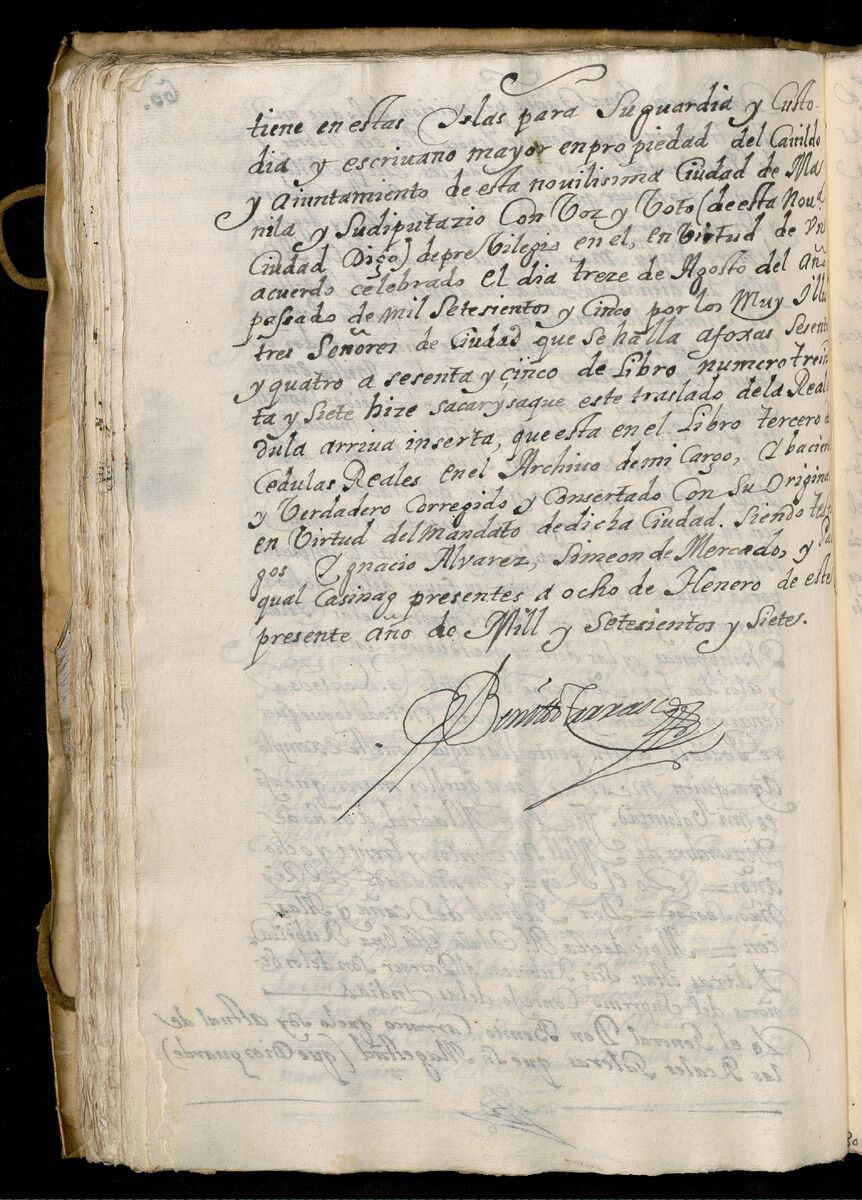 tiene en estas Yslas para Su guardia y Custo-
dia y escrivano mayor en propiedad del Cavildo
y Aiuntamiento de esta novilisima Ciudad de Ma
nila y Sudiputazio Con Voz y Voto (de esta Nou
Ciudad Digo) de previlegio en el, en Virtud de Vn
acuerdo celebrado el dia treze de Agosto del Añ
passado de mil Setesientos y Cinco por los Muy Illu
tres Señores de Ciudad que Se halla afoxas Sesent
y quatro a sesenta y cinco de Libro numero trein
ta y Siete hize sacar y saque este traslado dela Real
dula arriva inserta, que esta en el Libro tercero
Cedulas Reales en el Archivo de mi Cargo,
y Verdadero Corregido y Consertado Con Su Origin
en Virtud del mandato de dicha Ciudad. Siendo tes
gos Ygnacio Alvarez, Simeon de Mercado, y Pas
qual Casinag presentes a ocho de Henero de este
presente año de Mill y Setesientos y Siete.
Benitto Carrasco